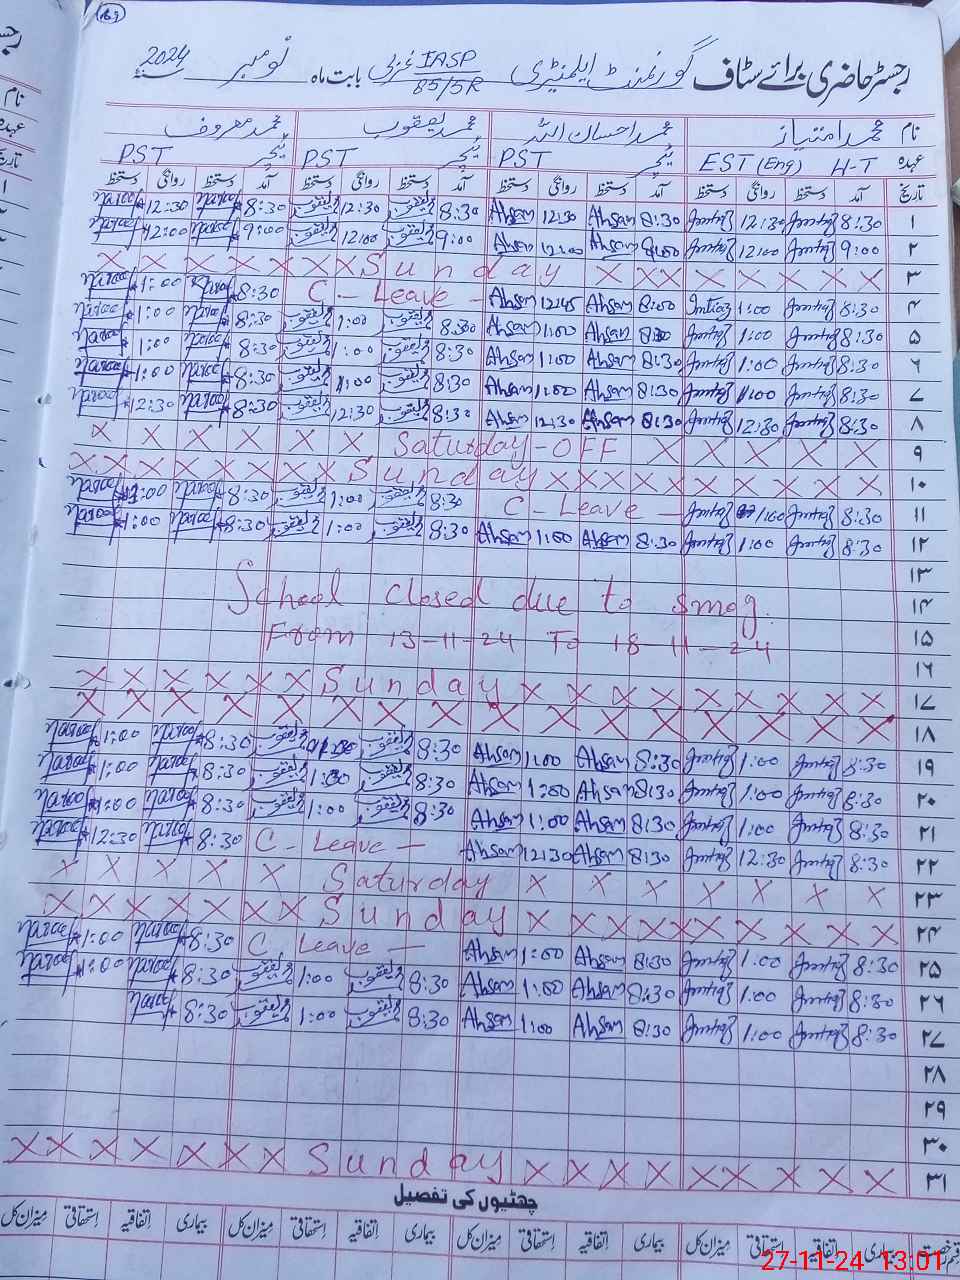 رجسٹر حاضری برائے سٹاف گورنمنٹ ایلیمنٹری IASP 85/5R غربی بابت ماہ نومبر سنہ 2024
نام محمد امتیاز محمد احسان اللہ محمد یعقوب محمد معروف
عہدہ H-T EST (Eng) ٹیچر PST ٹیچر PST ٹیچر PST
تاریخ آمد دستخط روانگی دستخط آمد دستخط روانگی دستخط آمد دستخط روانگی دستخط آمد دستخط روانگی دستخط
۱ 8:30 Imtiaz 12:30 Imtiaz 8:30 Ahsan 12:30 Ahsan 8:30 یعقوب 12:30 یعقوب 8:30 Maroof 12:30 Maroof
۲ 9:00 Imtiaz 12:00 Imtiaz 9:00 Ahsan 12:00 Ahsan 9:00 یعقوب 12:00 یعقوب 9:00 Maroof 12:00 Maroof
۳ x x x x x x x x x Sunday x x x x x x x x
۴ 8:30 Imtiaz 1:00 Imtiaz 8:00 Ahsan 12:45 Ahsan C-Leave - 8:30 Maroof 1:00 Maroof
۵ 8:30 Imtiaz 1:00 Imtiaz 8:30 Ahsan 1:00 Ahsan 8:30 یعقوب 1:00 یعقوب 8:30 Maroof 1:00 Maroof
۶ 8:30 Imtiaz 1:00 Imtiaz 8:30 Ahsan 1:00 Ahsan 8:30 یعقوب 1:00 یعقوب 8:30 Maroof 1:00 Maroof
۷ 8:30 Imtiaz 1:00 Imtiaz 8:30 Ahsan 1:00 Ahsan 8:30 یعقوب 1:00 یعقوب 8:30 Maroof 1:00 Maroof
۸ 8:30 Imtiaz 12:30 Imtiaz 8:30 Ahsan 12:30 Ahsan 8:30 یعقوب 12:30 یعقوب 8:30 Maroof 12:30 Maroof
۹ x x x x x x Saturday-OFF x x x x x
۱۰ x x x x x x x x x Sunday x x x x x x x x
۱۱ 8:30 Imtiaz 1:00 Imtiaz C-Leave - 8:30 یعقوب 1:00 یعقوب 8:30 Maroof 1:00 Maroof
۱۲ 8:30 Imtiaz 1:00 Imtiaz 8:30 Ahsan 1:00 Ahsan 8:30 یعقوب 1:00 یعقوب 8:30 Maroof 1:00 Maroof
۱۳
۱۴ School closed due to smog.
۱۵ From 13-11-24 To 18-11-24
۱۶
۱۷ x x x x x x Sunday x x x x x x x x
۱۸ x x x x x x x x x x x x x x x
۱۹ 8:30 Imtiaz 1:00 Imtiaz 8:30 Ahsan 1:00 Ahsan 8:30 یعقوب یعقوب 8:30 Maroof 1:00 Maroof
۲۰ 8:30 Imtiaz 1:00 Imtiaz 8:30 Ahsan 1:00 Ahsan 8:30 یعقوب 1:00 یعقوب 8:30 Maroof 1:00 Maroof
۲۱ 8:30 Imtiaz 1:00 Imtiaz 8:30 Ahsan 1:00 Ahsan 8:30 یعقوب 1:00 یعقوب 8:30 Maroof 1:00 Maroof
۲۲ 8:30 Imtiaz 12:30 Imtiaz 8:30 Ahsan 12:30 Ahsan C-Leave - 8:30 Maroof 12:30 Maroof
۲۳ x x x x x Saturday x x x x x x x
۲۴ x x x x x x x Sunday x x x x x x x x x
۲۵ 8:30 Imtiaz 1:00 Imtiaz 8:30 Ahsan 1:00 Ahsan C Leave - 8:30 Maroof 1:00 Maroof
۲۶ 8:30 Imtiaz 1:00 Imtiaz 8:30 Ahsan 1:00 Ahsan 8:30 یعقوب 1:00 یعقوب 8:30 Maroof 1:00 Maroof
۲۷ 8:30 Imtiaz 1:00 Imtiaz 8:30 Ahsan 1:00 Ahsan 8:30 یعقوب 1:00 یعقوب 8:30 Maroof
۲۸
۲۹
۳۰
۳۱ x x x x x x x Sunday x x x x x x x x x
چھٹیوں کی تفصیل
قسم رخصت بیماری اتفاقیہ استحقاقی میزان کل بیماری اتفاقیہ استحقاقی میزان کل بیماری اتفاقیہ استحقاقی میزان کل بیماری اتفاقیہ استحقاقی میزان کل
27-11-24 13:01